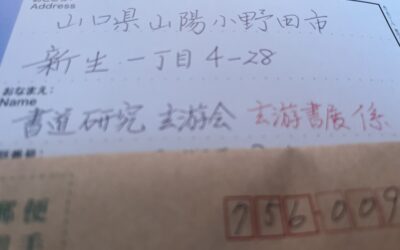 Address
山口県山陽小野田市
新生一丁目4-28
おなまえ:
Name
書道研究 玄游会 玄游書展係
郵便
切手
756-009